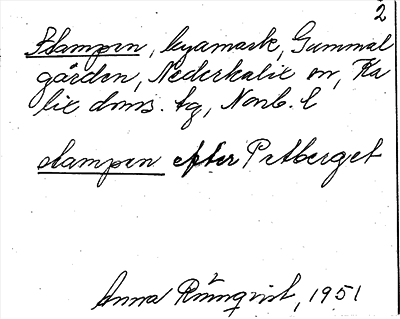 2
Slampen, byamark, Gammal
gården, Nederkalix sn, Ka
lix doms. tg, Norb. l
slampen efter Petberget
Anna Rönnqvist, 1951